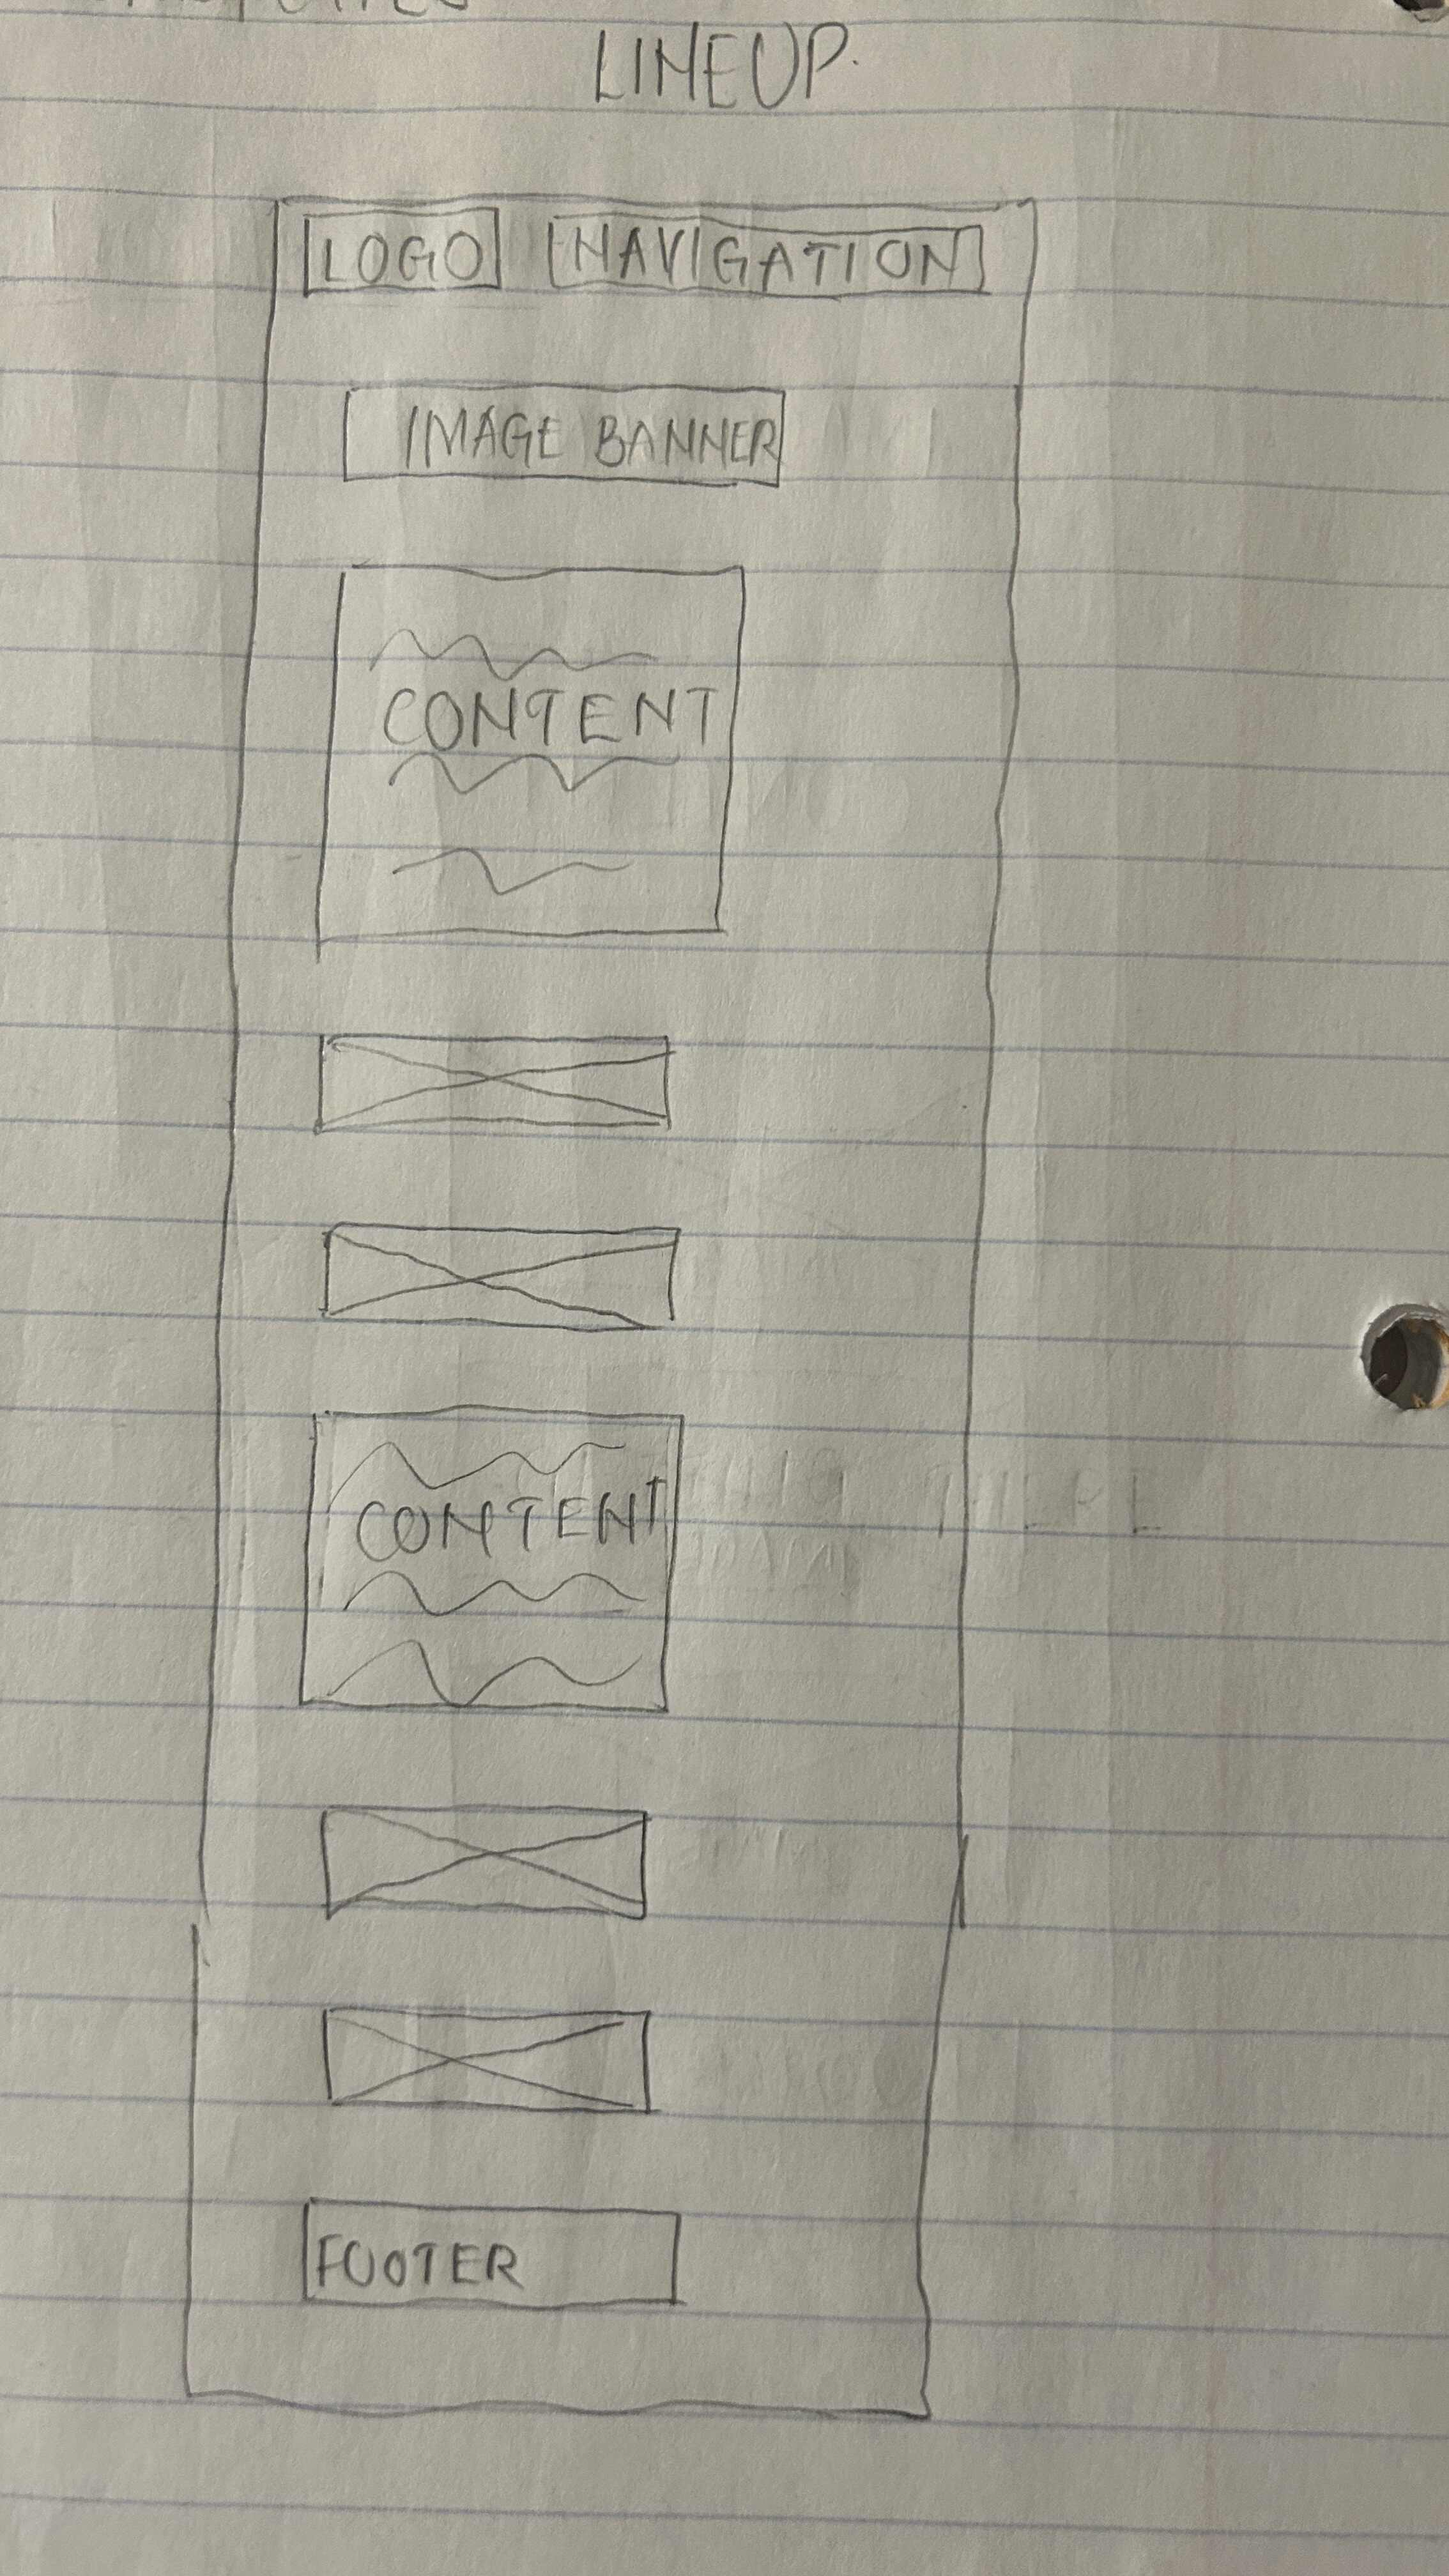 LINEUP.
LOGO NAVIGATION
IMAGE BANNER
CONTENT
CONTENT
FOOTER